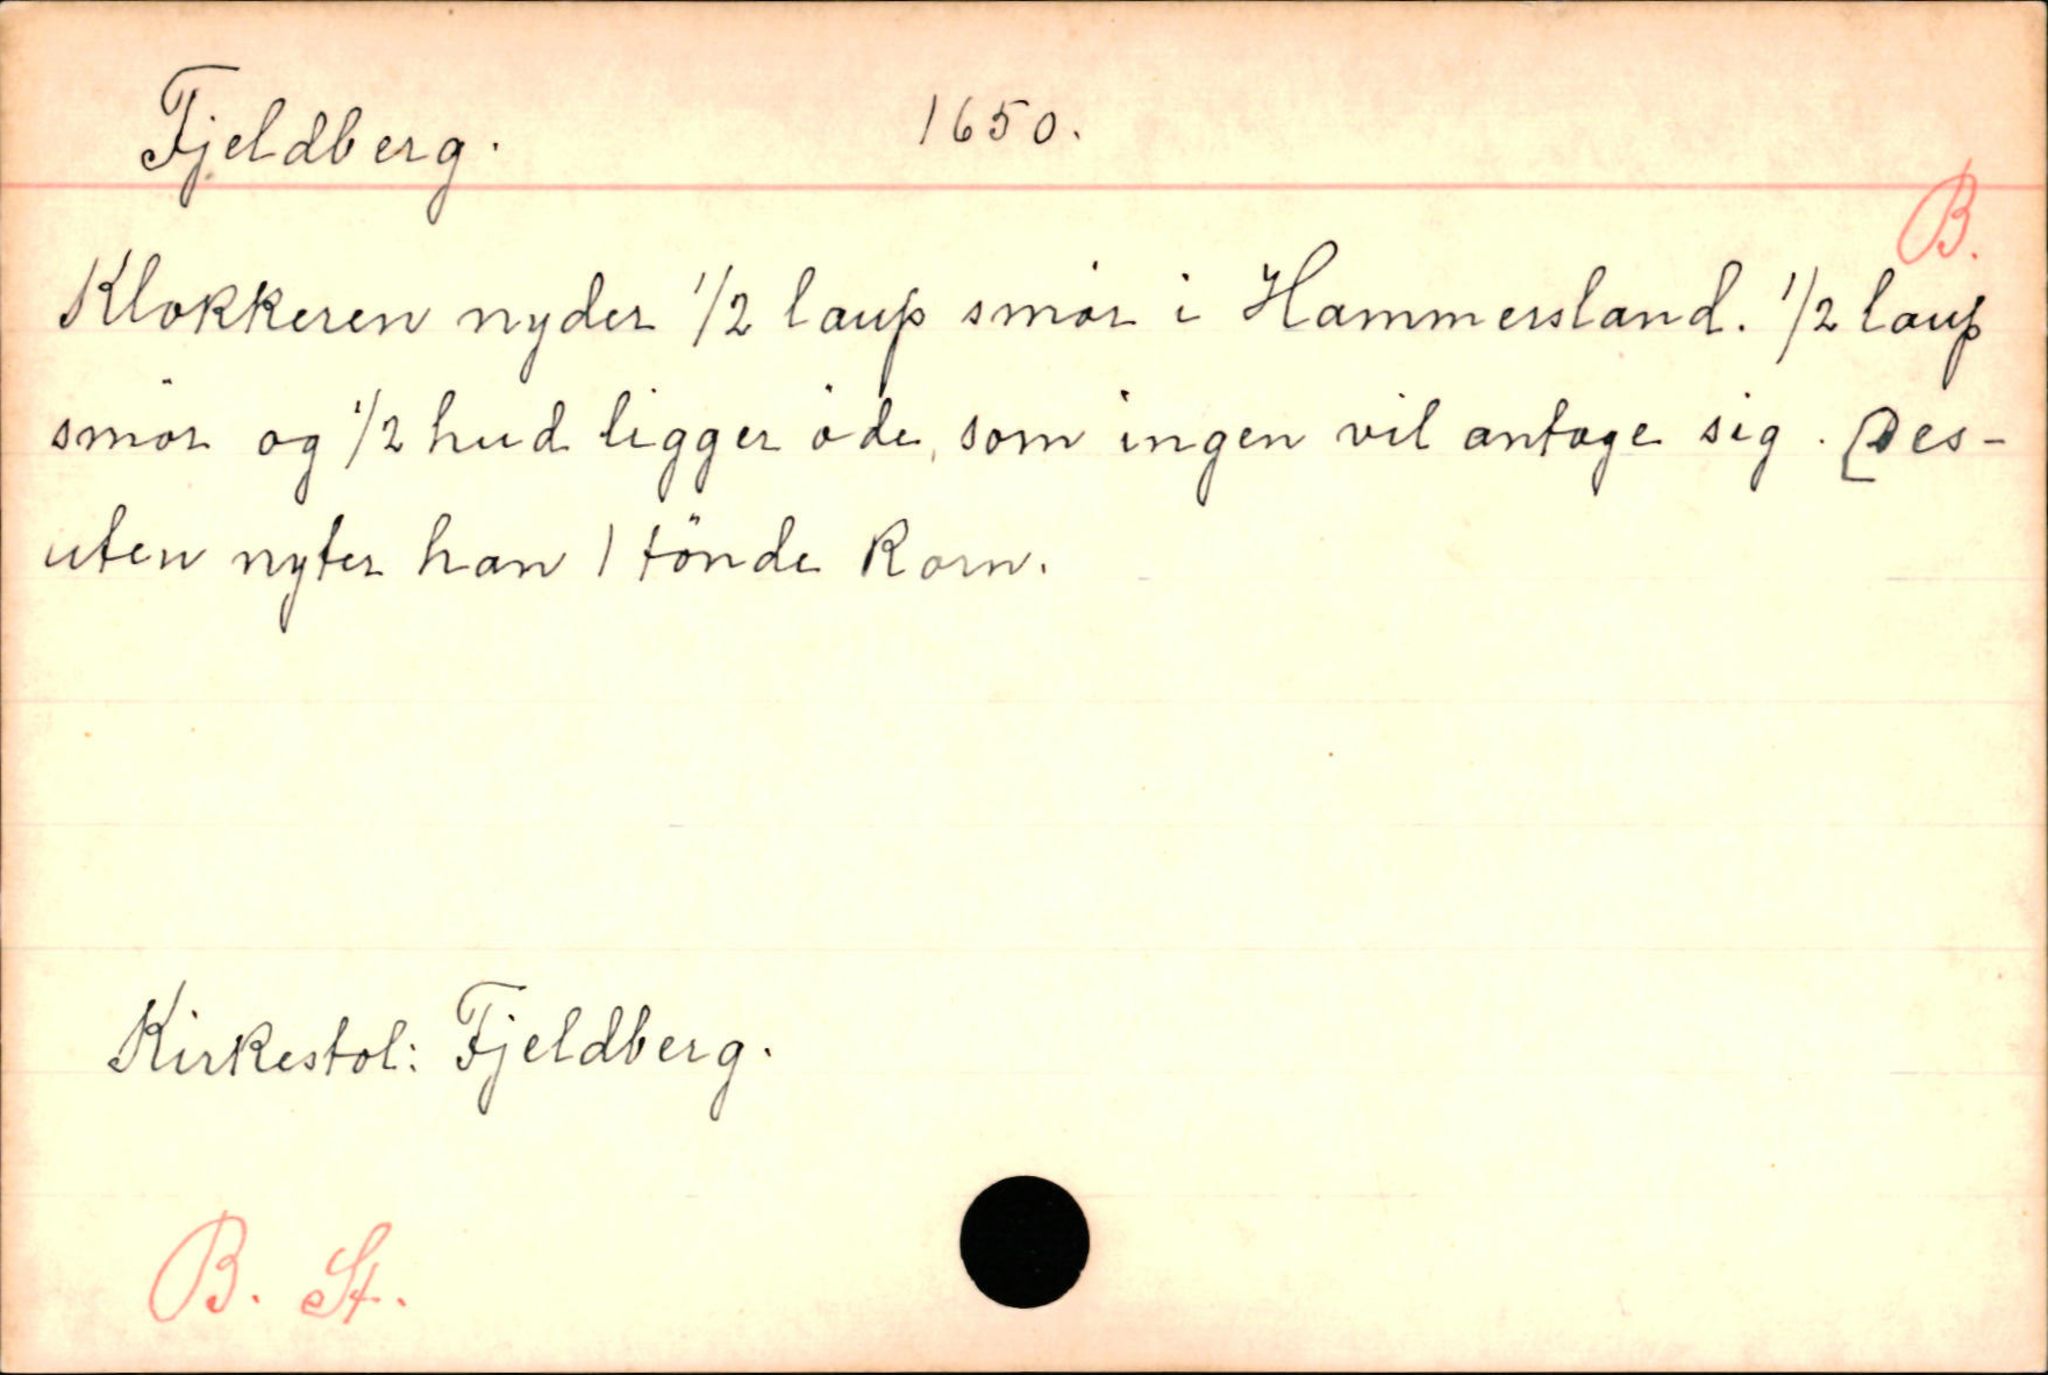 Fjeldberg. 1650.
B.
Klokkeren nyder 1/2 laup smör i Hammersland. 1/2 laup
smör og 1/2 hud ligger öde, som ingen vil antage sig. Des-
uten nyter han 1 tönde korn.
Kirkestol: Fjeldberg.
B. St.